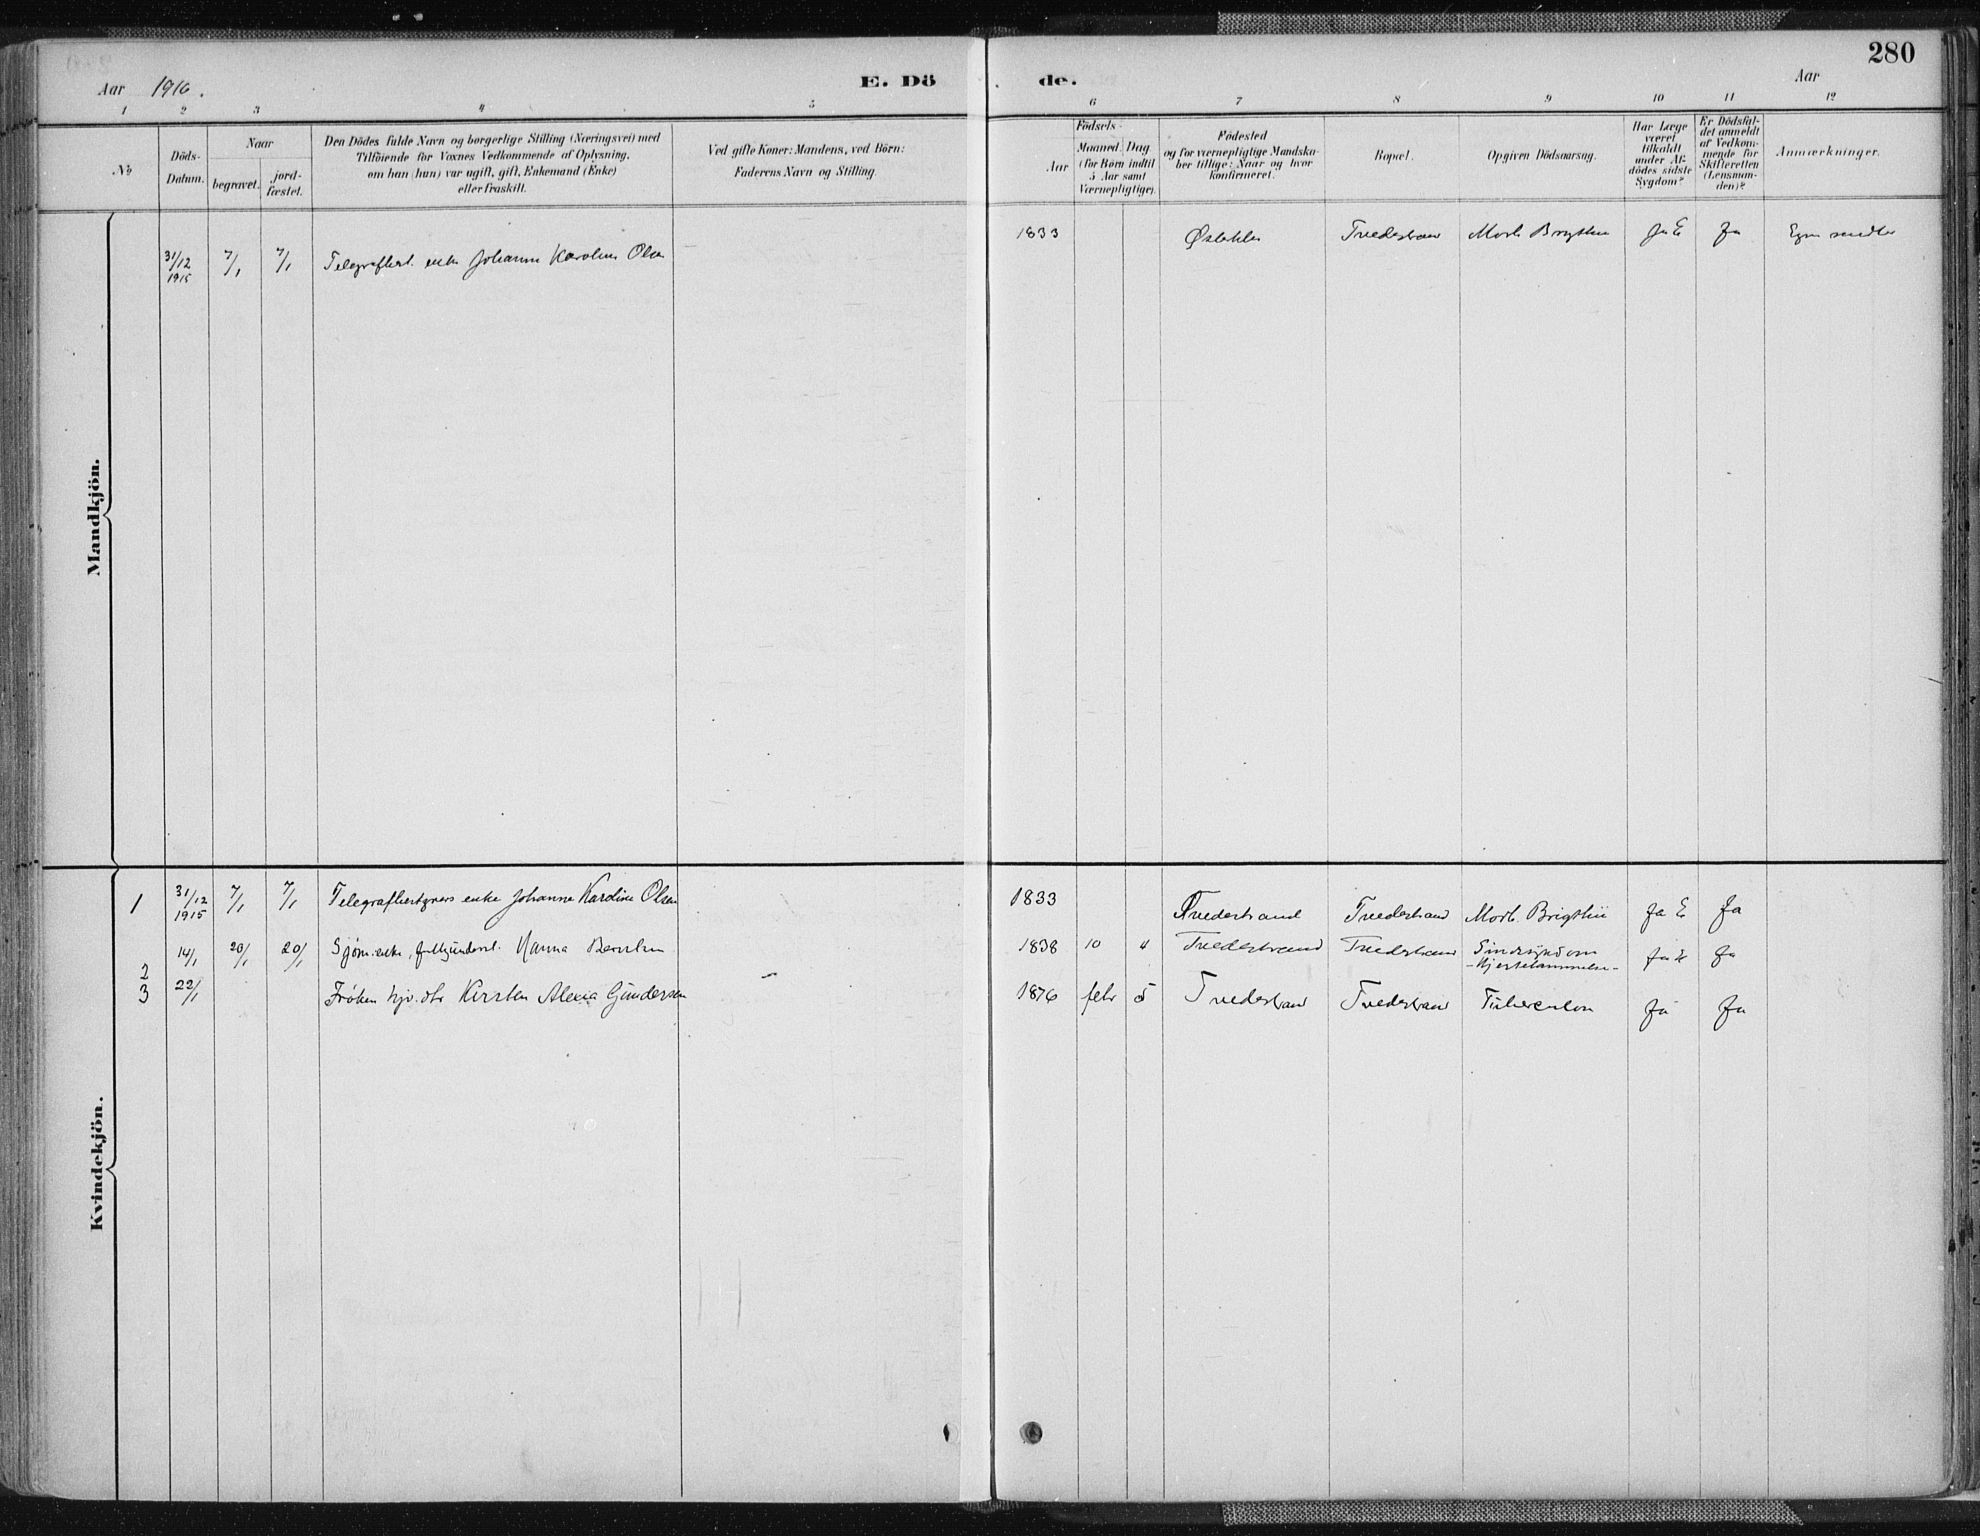 280
Aar 1916.
E. Dö
de.
Aar
1 2 3 4 5 6 7 8 9 10 11 12
No
Döds-
Datum.
Naar
begravet.
jord-
fæstet.
Den Dödes fulde Navn og borgerlige Stilling (Næringsvei) med
Tilföiende for Voxnes Vedkommende af Oplysning,
om han (hun) var ugift, gift, Enkemand (Enke)
eller fraskilt.
Ved gifte Koner: Mandens, ved Börn:
Faderens Navn og Stilling.
Födsels-
Aar
Maaned. Dag
(for Börn indtil
5 Aar samt
Værnepligtige).
Födested
og for værnepligtige Mandska-
ber tillige: Naar og hvor
konfirmeret.
Bopæl.
Opgiven Dödsaarsag.
Har Læge
været
tilkaldt
under Af-
dödes sidste
Sygdom?
Er Dödsfal-
det anmeldt
af Vedkom-
mende for
Skifteretten
(Lensman-
den)?
Anmærkninger.
Mandkjön.
31/12 1915 7/1 7/1 Telegrafbest. enke Johanne Karoline Olsen 1833 Tvedestrand Morb. Brigthii ja E ja
Kvindekjön.
1 31/12 1915 7/1 7/1 Telegrafbestyrers enke Johanne Karoline Olsen 1833 Tvedestrand Tvedestrand Morb. Brigthii ja E ja
2 14/1 20/1 20/1 Sjöm. enke, Hanna 1838 10 4 Tvedestrand Tvedestrand Sindssygdom
-Hjertelammelse- ja E ja
3 22/1 Fröken Kirsten Alexia Gundersen - 1876 febr 5 Tvedestrand Tvedestrand Tuberculose ja ja